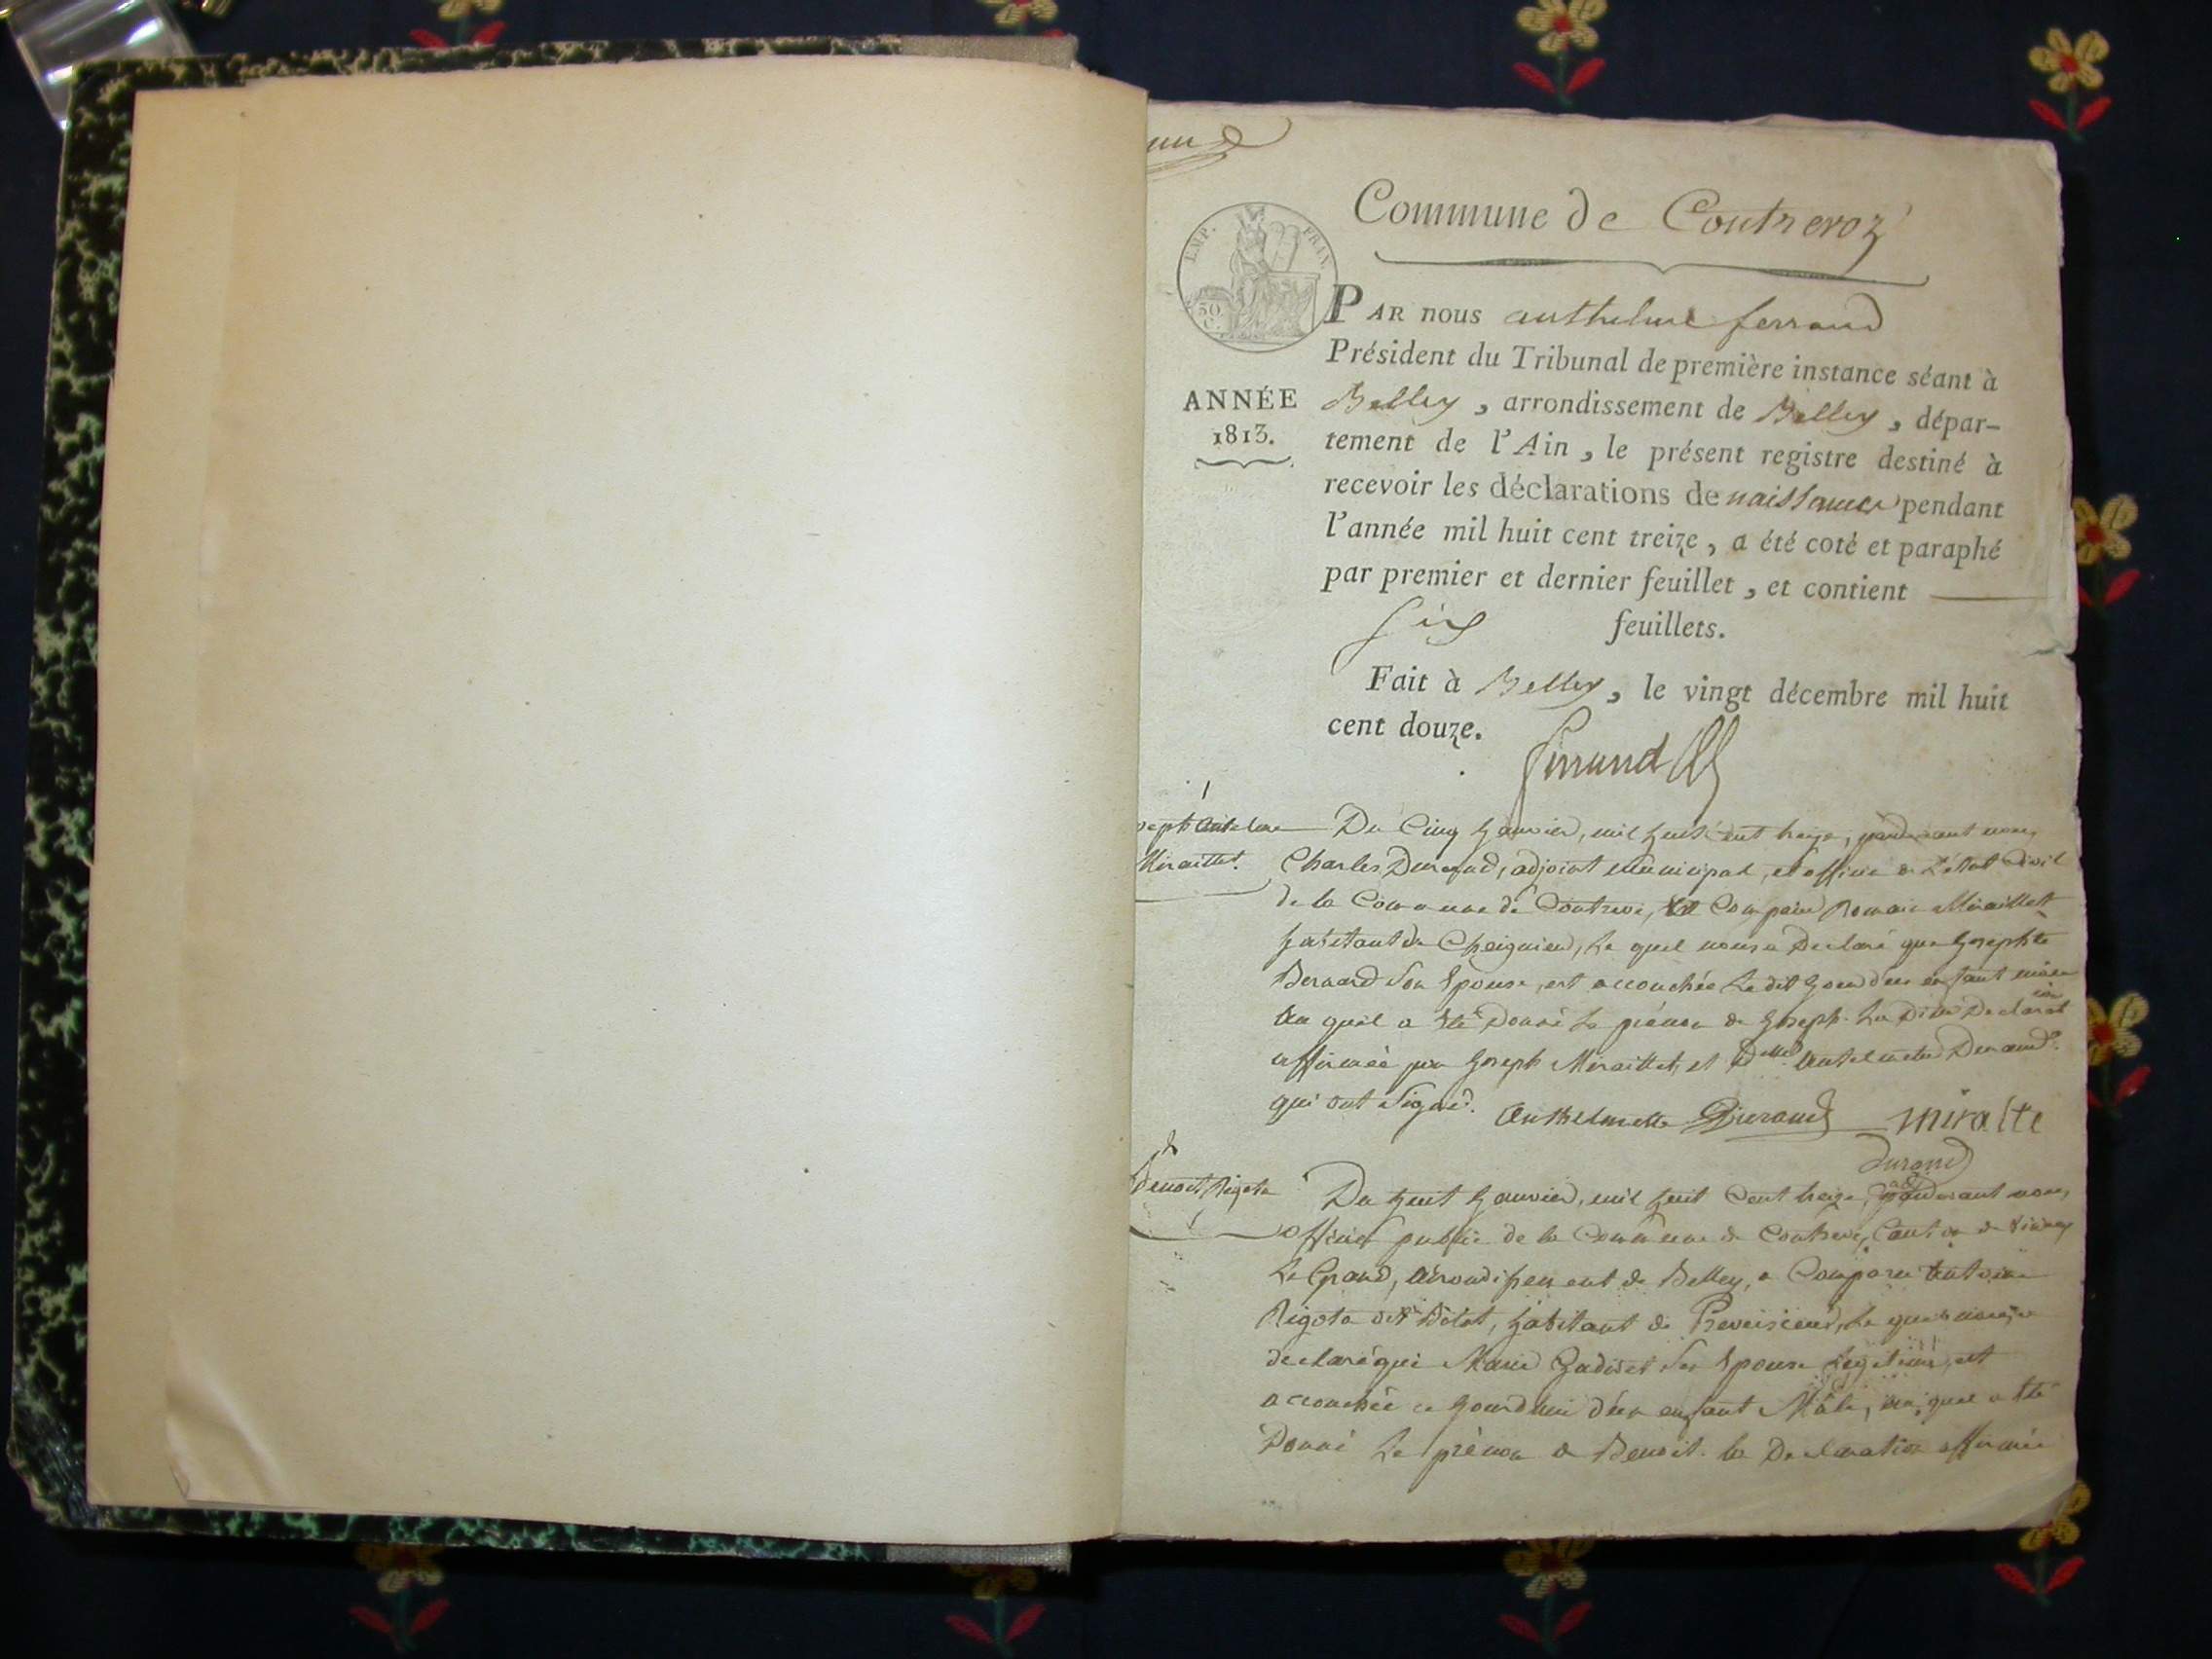 Commune de Contrevoz
EMP. FRAN.
50
C.
PAR nous anthelme ferrand
Président du Tribunal de première instance séant à
ANNÉE
1813.
Belley, arrondissement de Belley, dépar-
tement de l'Ain, le présent registre destiné à
recevoir les déclarations de naissance pendant
l'année mil huit cent treize, a été coté et paraphé
par premier et dernier feuillet, et contient
six feuillets.
Fait à Belley, le vingt décembre mil huit
cent douze.
Ferrand
1
oseph Antelme
Miraillet.
Du Cinq Janvier, mil huit Cent treize, pardevant nous,
Charles Durand, adjoint Municipal, et officier de L'état Civil
de la Commune de Contrevoz, est Comparu Romain Miraillet
habitant de Cheignieu, Le quel nous a Declaré que Josephte
Bernard Son Epouse, est accouchée Le dit Jour d'un enfant mâle
Au quel a été Donné Le prénom de Joseph. La Dite Declaration
affirmée par Joseph Miraillet, et Delle Antelmette Durand.
qui ont Signé. Anthelmette Durand miralte
durand
2
Benoit Rigola
Du huit Janvier, mil huit Cent treize, pardevant nous,
officier public de la Commune de Contrevoz, Canton de Virieu
Le Grand, Arrondissement de Belley, a Comparu Antoine
Rigola dit Bélat, habitant de Preveisieu, Le quel nous a
declaré que Marie Gadiolet Son Epouse Legitime, est
accouchée ce Jourdhui d'un enfant Mâle, au quel a été
Donné Le prénom de Benoit. la Declaration affirmée